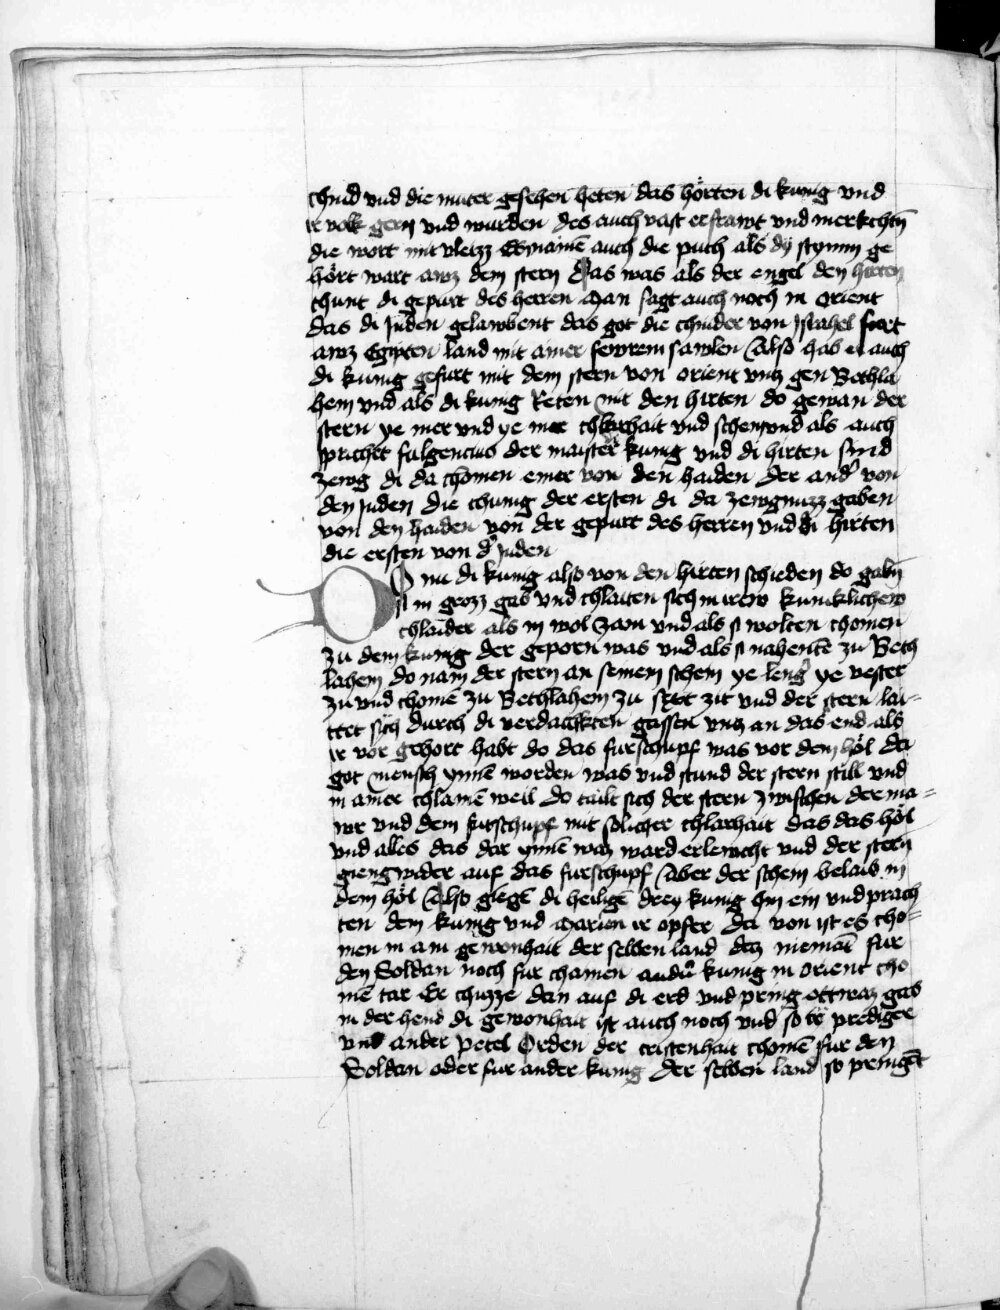 chind vnd die muter gesehen heten das hörten di kunig vnd
ir volk gern vnd wurden des auch vast erfrawt vnd merkchtn̄
die wort mit vleizz Etn̄amē auch die puch als dy stymm ge
hört wart awz dem stern Das was als der engel den hirten
chunt di gepurt des herren Man sagt auch noch in Orient
das di Juden gelawbent das got die chinder von Jsrahel furt
awz Egipten land mit ainer fewrein sawlen Also hab er auch
di kunig gefurt mit dem stern von orient vntz gen Bethla
hem vnd als di kunig Reten mit den hirten do gewan der
stern ye mer vnd ye mer chlarhait vnd schein vnd als auch
sprichet fulgencius der maister kunig vnd di hirten sind
zewg di da chömen einer von den haiden der and' von
den Juden die chunig der ersten di da zewgnuzz gaben
von den haiden von der gepurt des herren vnd di hirten
die ersten von d' Juden
Do nu di kunig also von den hirten schieden do gabn̄
si in grozz gab vnd chlaiten sich in irew kunicklichew
chlaider als in wol zam vnd als si wolten chomen
zu dem kunig der geporn was vnd als si nahentē zu Beth
lahem do nam der stern an seinem schein ye leng' ye vester
zu vnd chomē zu Bethlahem zu sext zit vnd der stern lai-
ttet sich durch di verdachkten gassen vntz an das end als
ir vor gehort habt do das furschupf was vor dem höl da
got mensch ynnē worden was vnd stund der stern still vnd
in ainer chlainē weil do tailt sich der stern zwischen der ma=
wr vnd dem furschupf mit solicher chlarhait das das höl
vnd alles das dar ynnē waz ward erlewcht vnd der stern
gieng wider auf das furschupf Aber der schein belaib in
dem höl Also giēgē di heiligē drey kunig hin ein vnd prach
ten dem kunig vnd Marien ir opfer Da von ist es cho=
men in ain gewonhait der selben land daz niemāt fur
den Soldan noch fur chainen andn̄ kunig in orient cho
mē tar Er chuzze dan auf di erd vnd pring ettwaz gab
in der hend di gewonhait ist auch noch vnd so dy prediger
vnd ander petel Orden der cristenhait chomē fur den
Soldan oder fur ander kunig der selben land so pringēt